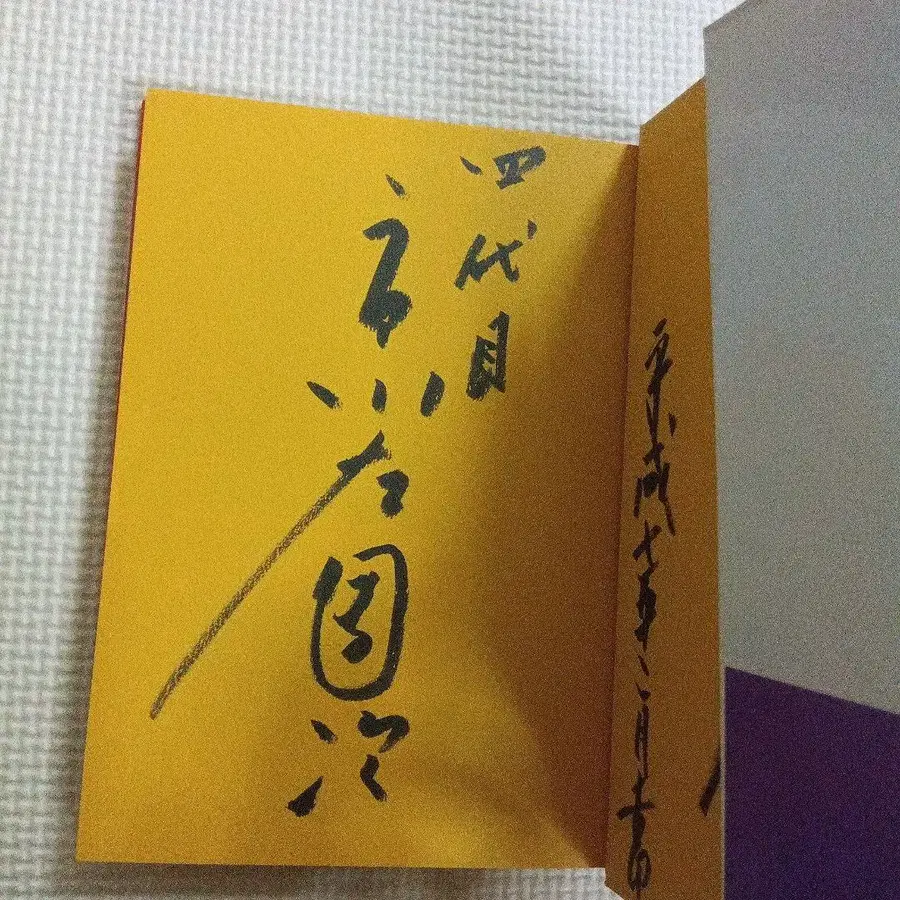 平成七年八月
四代目
市川左團次